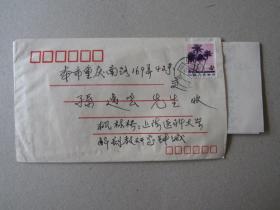 本市重庆南路169弄42号
孙逸云先生 收
枫林桥:上海医科大学
解剖教研室钟缄